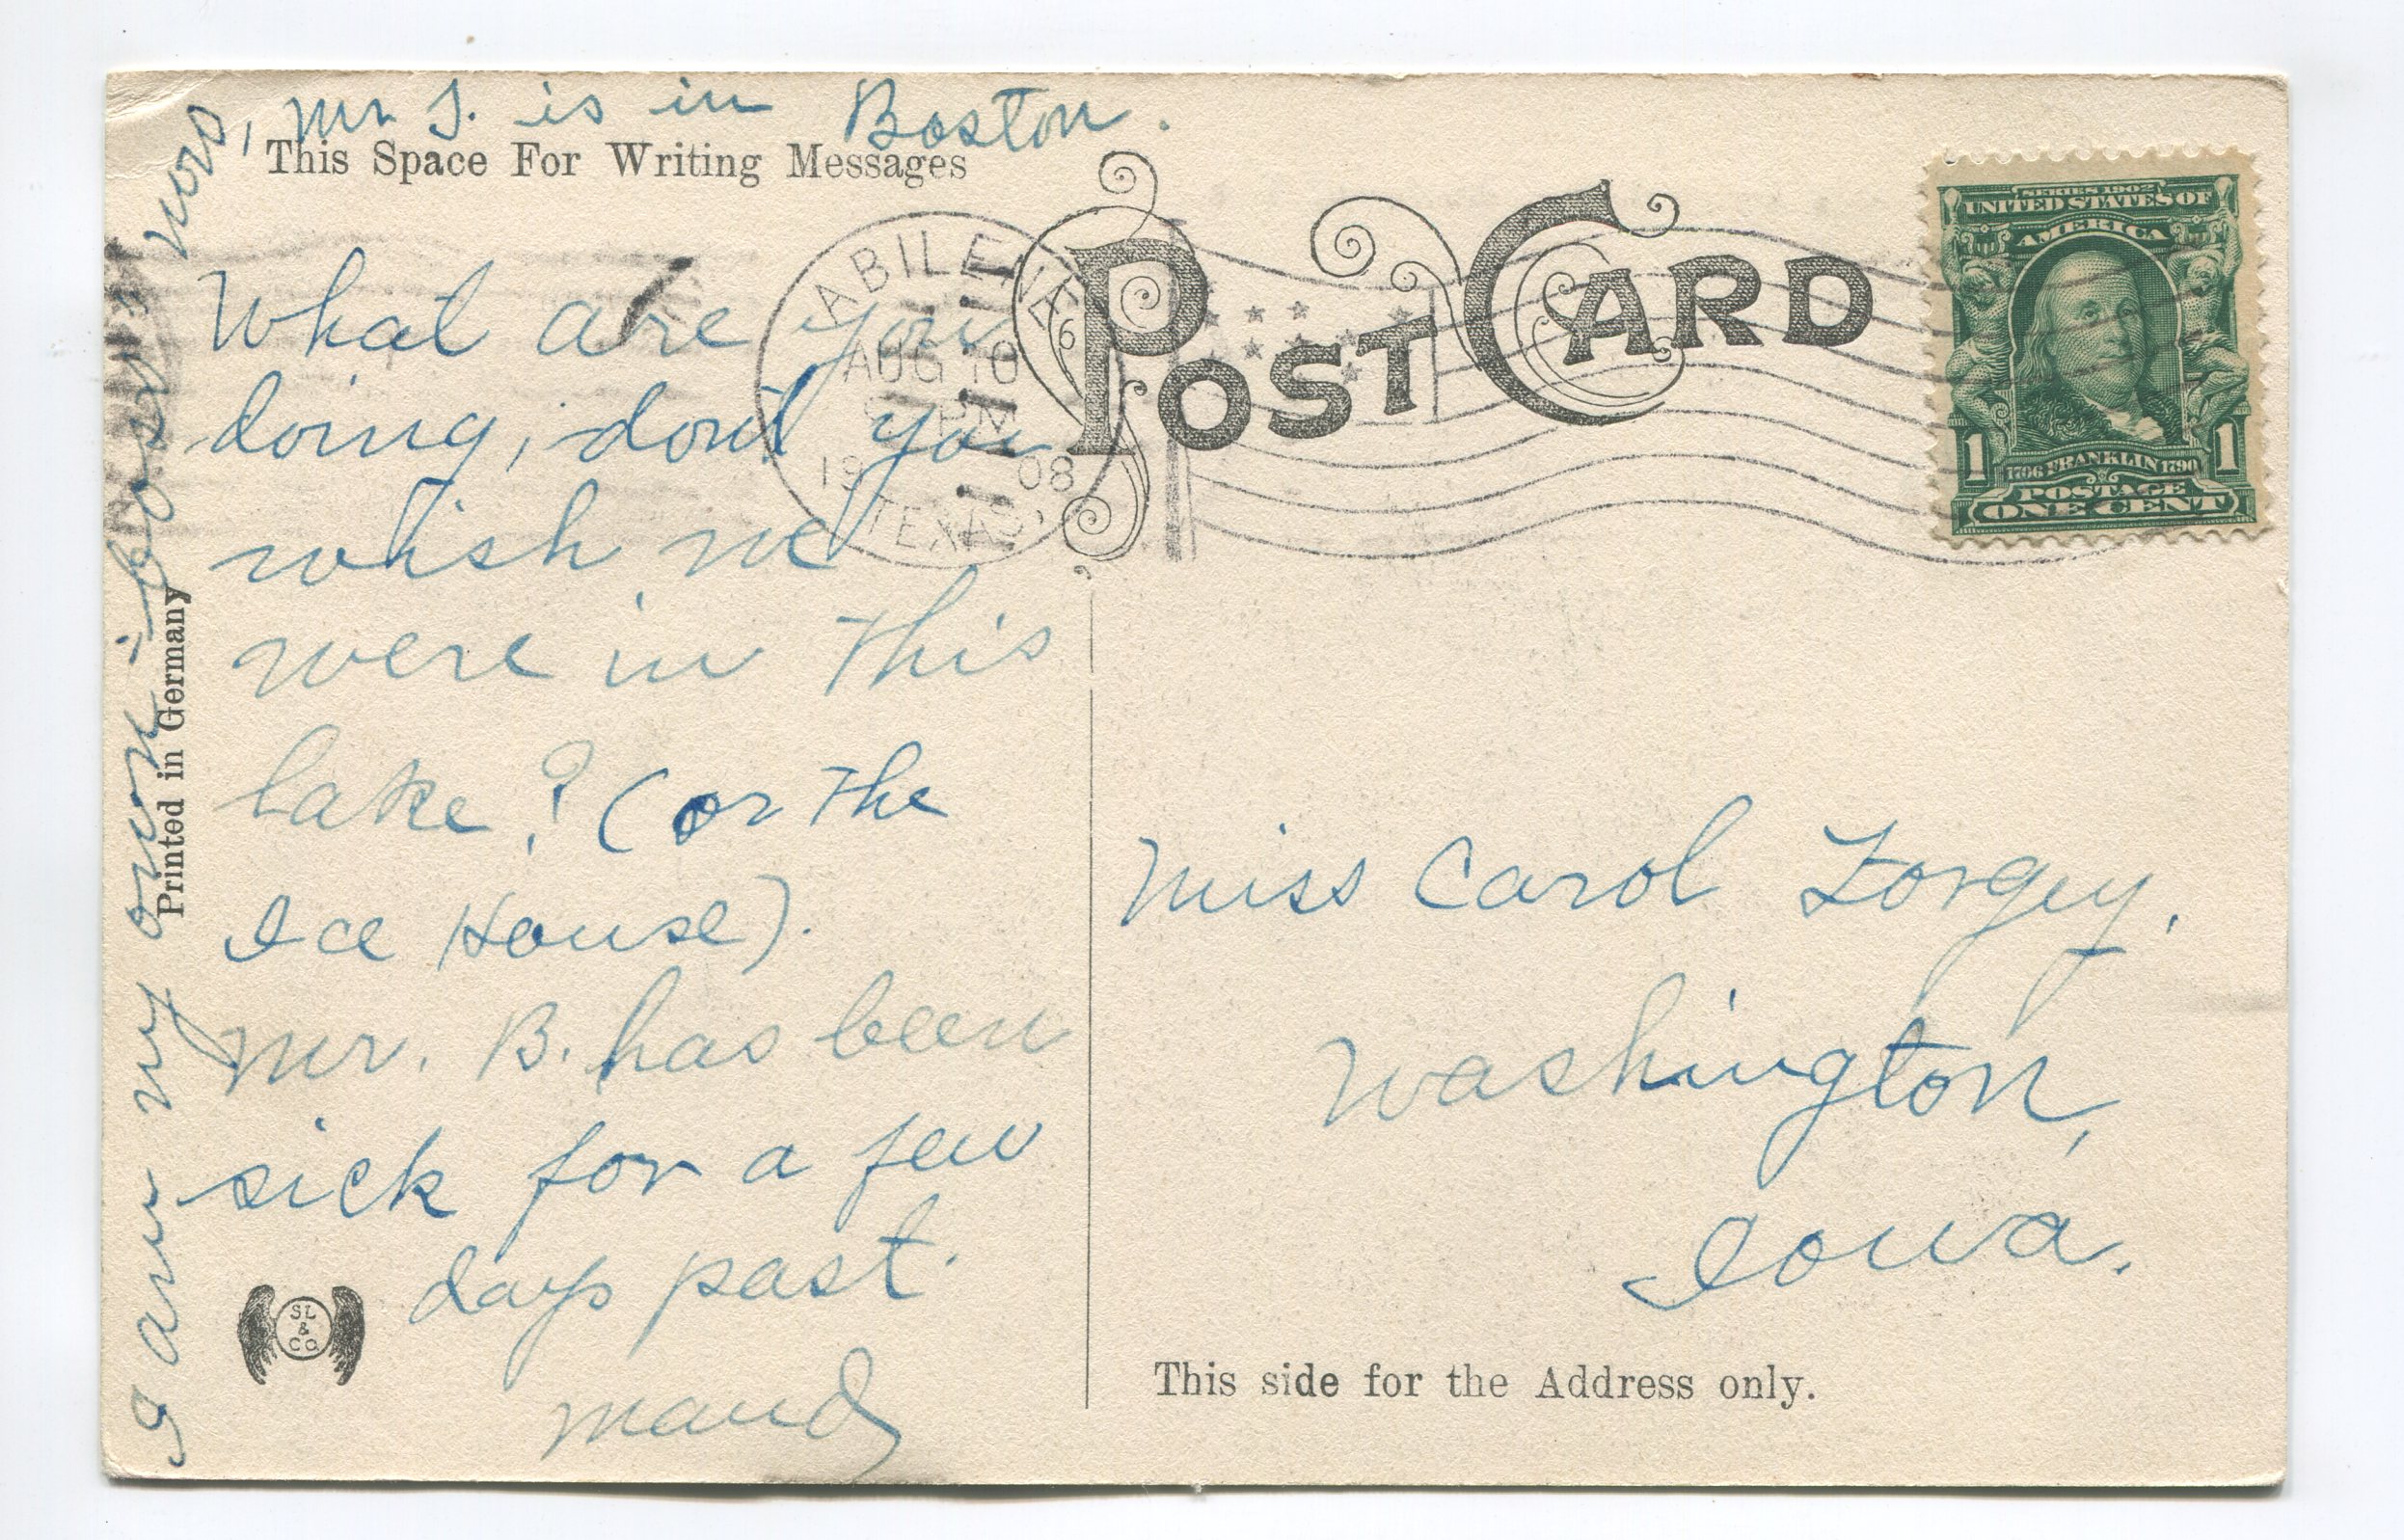 Mr. S. is in Boston.
This Space For Writing Messages
What are you
doing, don't you
wish we
were in this
lake? (or the
Ice House).
Mr. B. has been
sick for a few
days past.
Maud
I am my own "boss"
now,
Printed in Germany
SL
&
Co
ABILENE
AUG 10
PM
19 08
TEXAS
POST CARD
SERIES 1902
UNITED STATES OF
AMERICA
1706 FRANKLIN 1790
1 1
POSTAGE
ONE CENT
Miss Carol Forgey,
Washington,
Iowa.
This side for the Address only.